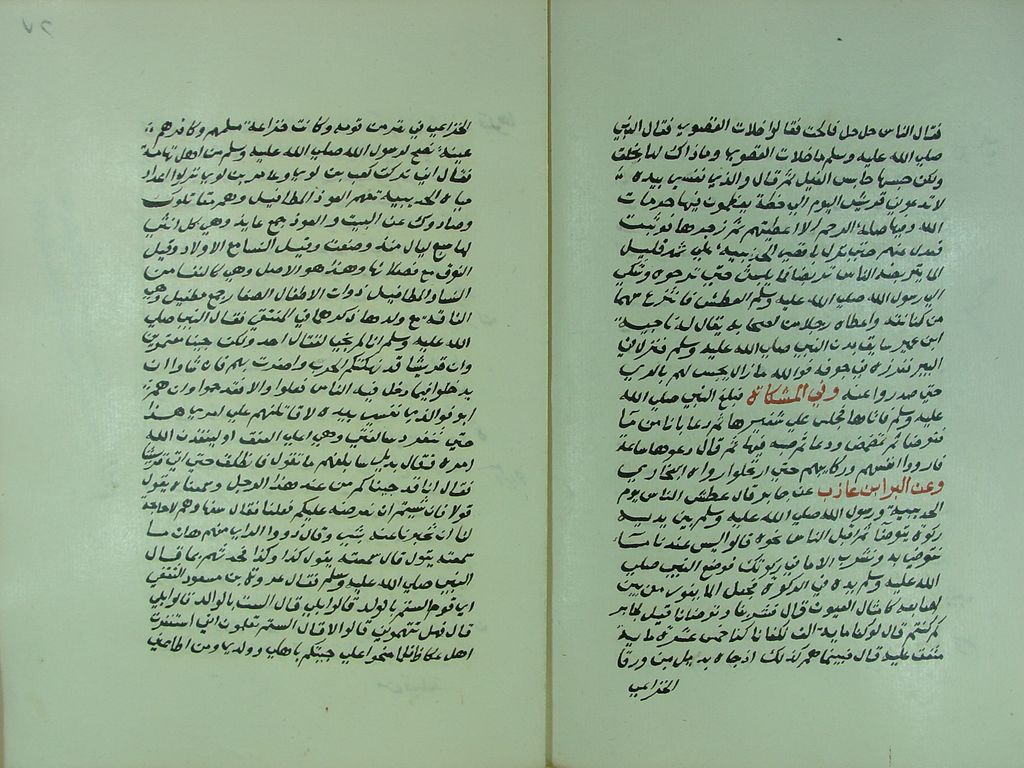 فقال الناس حل حل فالحت فقالوا خلات القصوى فقال النبي
صلى الله عليه وسلم ما خلات القصوى وما ذاك لها بخلق
ولكن حبسها حابس الفيل ثم قال والذي نفسي بيده
لا تدعوني قريش اليوم الى خطة يعظمون فيها حرمات
الله وفيها صلة الرحم الا اعطيتهم ثم زجرها فوثبت
فعدل عنهم حتى نزل باقصى الحديبية على ثمد قليل
الما يتربضه الناس تربضا فلم يلبث حتى نزحوه وشكي
الى رسول الله صلى الله عليه وسلم العطش فانتزع سهما
من كنانته واعطاه رجلا من اصحابه يقال له ناجية
ابن عمير سايق بدن النبي صلى الله عليه وسلم فنزل في
البير فغرزه في جوفه فوالله ما زال يجيش لهم بالري
حتى صدروا عنه وفي المشكاة فبلغ النبي صلى الله
عليه وسلم فاتاها فجلس على شفيرها ثم دعا بانا من ما
فتوضا ثم تمضمض ودعا ثم صبه فيها ثم قال دعوها ساعة
فارووا انفسهم وركابهم حتى ارتحلوا رواه البخاري
وعن البرا بن عازب عن جابر قال عطش الناس يوم
الحديبية ورسول الله صلى الله عليه وسلم بين يديه
ركوة يتوضا ثم اقبل الناس نحوه قالوا ليس عندنا ما
نتوضى به ونشرب الا ما في ركوتك فوضع النبي صلى
الله عليه وسلم يده في الركوة فجعل الما يفور من بين
اصابعه كامثال العيون قال فشربنا وتوضانا قيل لجابر
كم كنتم قال لو كنا ماية الف لكفانا كنا خمس عشرة ماية
متفق عليه قال فبينما هم كذلك اذ جاه بديل من ورقا
الخزاعي
الخزاعي في نفر من قومه وكانت خزاعة مسلمهم وكافرهم
عيبة نصح لرسول الله صلى الله عليه وسلم من اهل تهامة
فقال اني تركت كعب بن لوي وعامر بن لوي نزلوا اعداد
مياه الحديبية معهم العوذ المطافيل وهم مقاتلوك
وصادوك عن البيت والعوذ جمع عايذ وهي كل انثى
لها سبع ليال منذ وضعت وقيل النسا مع الاولاد وقيل
النوق مع فصلانها وهذا هو الاصل وهي كالنفسا من
النسا والمطافيل ذوات الاطفال الصغار جمع مطفيل وهي
الناقة مع ولدها فقال النبي صلى
الله عليه وسلم انا لم نجي لقتال احد ولكن جينا معتمرين
وان قريشا قد نهكتهم الحرب واضرت بهم فان شاوا ان
يدخلوا فيما دخل فيه الناس فعلوا والا فقد جموا وان هم
ابو فوالذي نفسي بيده لا قاتلنهم على امري هذا
حتى تنفرد سالفتي وهي اعلى العنق او لينفذن الله
امره فقال بديل سابلغهم ما تقول فانطلق حتى اتى قريشا
فقال انا قد جيناكم من عند هذا الرجل وسمعناه يقول
قولا فان شيتم ان نعرضه عليكم فعلنا فقال سفهاوهم لا حاجة
لنا ان تخبرنا عنه بشي وقال ذووا الراي منهم هات ما
سمعته يقول قال سمعته يقول كذا وكذا فحدثهم بما قال
النبي صلى الله عليه وسلم فقال عروة بن مسعود الثقفي
اي قوم الستم بالولد قالوا بلى قال الست بالوالد قالوا بلى
قال فهل تتهموني قالوا لا قال الستم تعلمون اني استنفرت
اهل عكاظ فلما بلحوا علي جيتكم باهلي وولدي ومن اطاعني